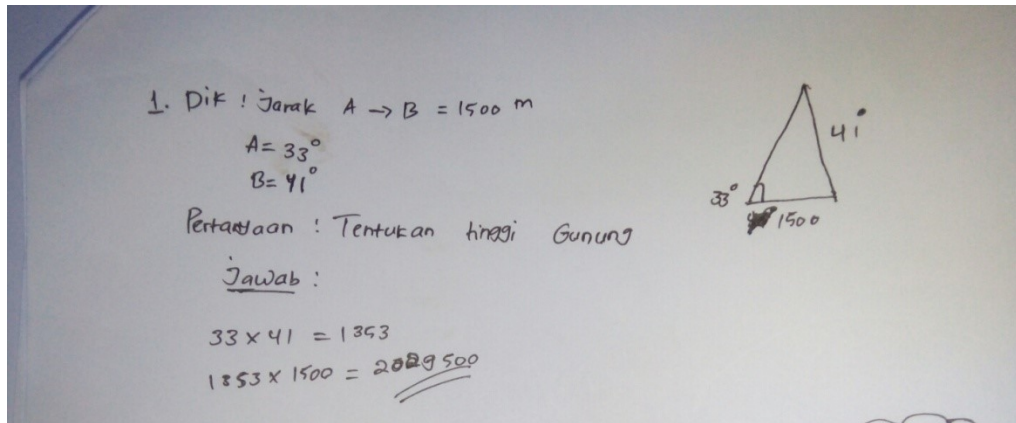 1. Dik : Jarak A → B = 1500 m
A = 33°
B = 41°
Pertanyaan : Tentukan tinggi Gunung
Jawab :
33 × 41 = 1353
1353 × 1500 = 2029500
41°
33°
1500